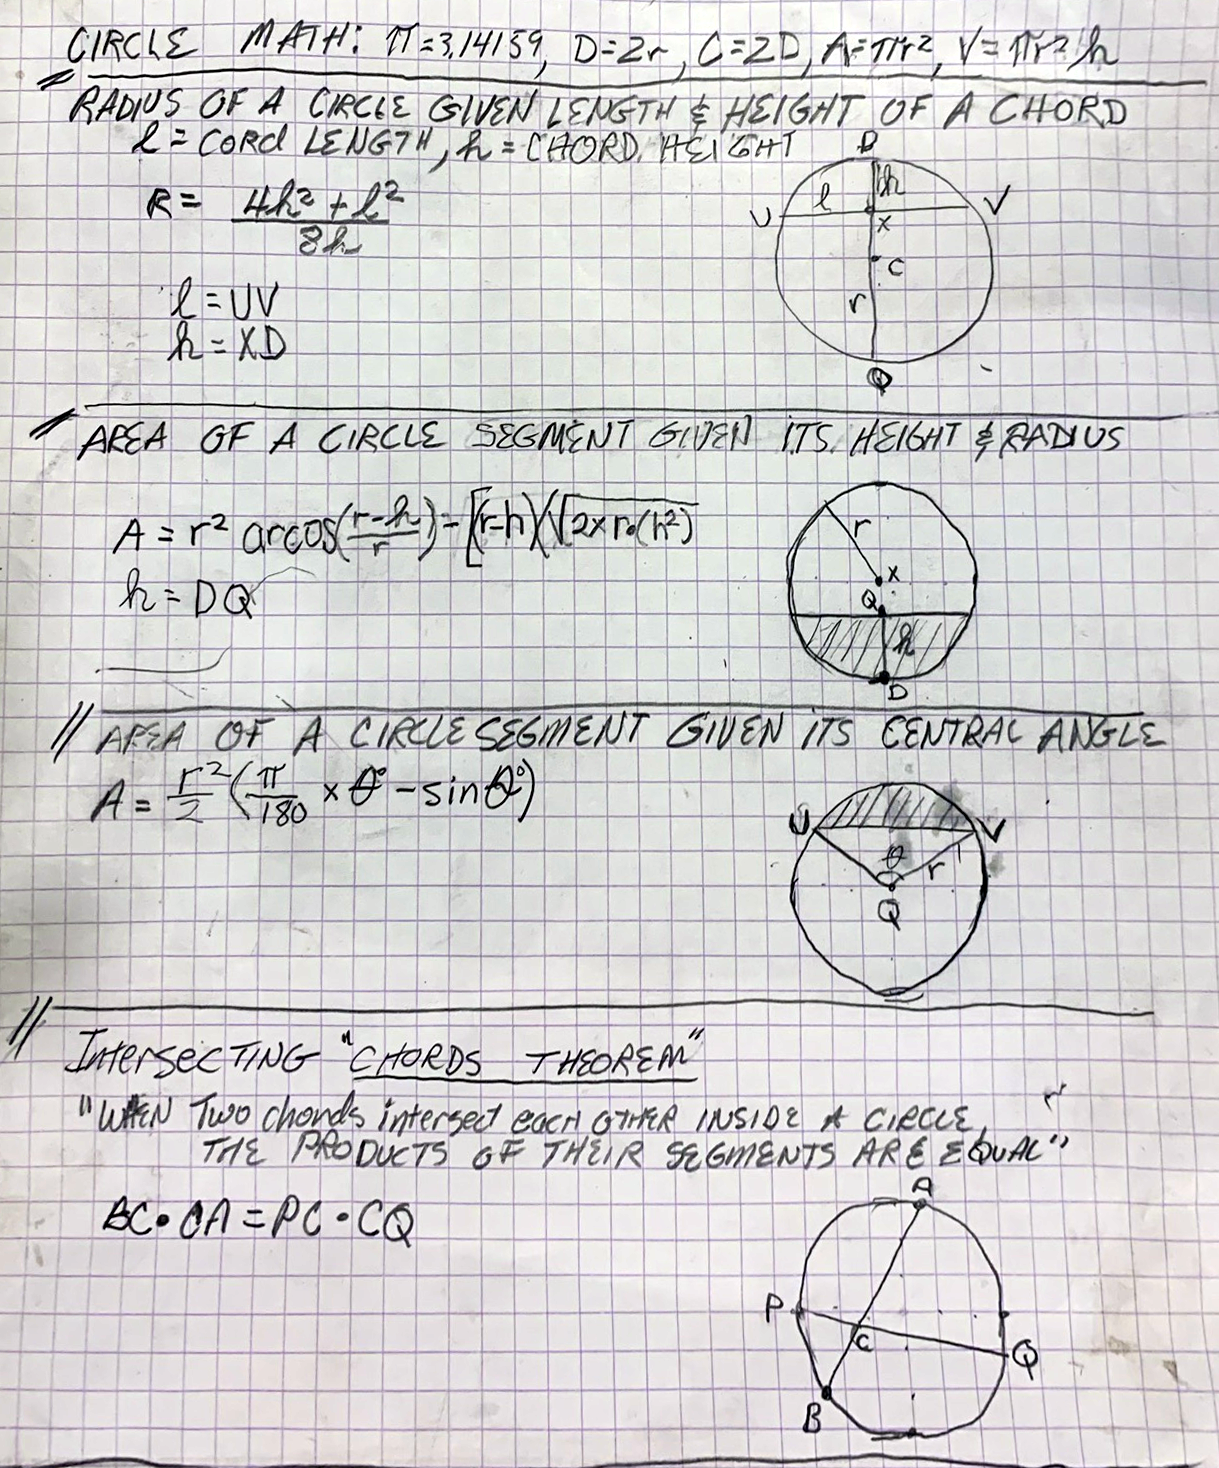 CIRCLE MATH: π=3.14159, D=2r, C=2D, A=πr², V=πr²h
RADIUS OF A CIRCLE GIVEN LENGTH & HEIGHT OF A CHORD
l = CORd LENGTH, h = CHORD HEIGHT
D
R = 4h² + l² / 8h
l
h
U
V
X
C
l = UV
r
h = XD
Q
AREA OF A CIRCLE SEGMENT GIVEN ITS HEIGHT & RADIUS
A = r² arcos((r-h)/r) - [(r-h)(√2×r•(h²)
r
X
h = DQ
Q
h
D
AREA OF A CIRCLE SEGMENT GIVEN ITS CENTRAL ANGLE
A = r²/2 (π/180 × θ° - sin θ°)
U
V
θ
r
Q
Intersecting "CHORDS THEOREM"
"WHEN Two chords intersect each OTHER INSIDE A CIRCLE,
THE PRODUCTS OF THEIR SEGMENTS ARE EQUAL"
A
BC•CA = PC•CQ
P
C
Q
B